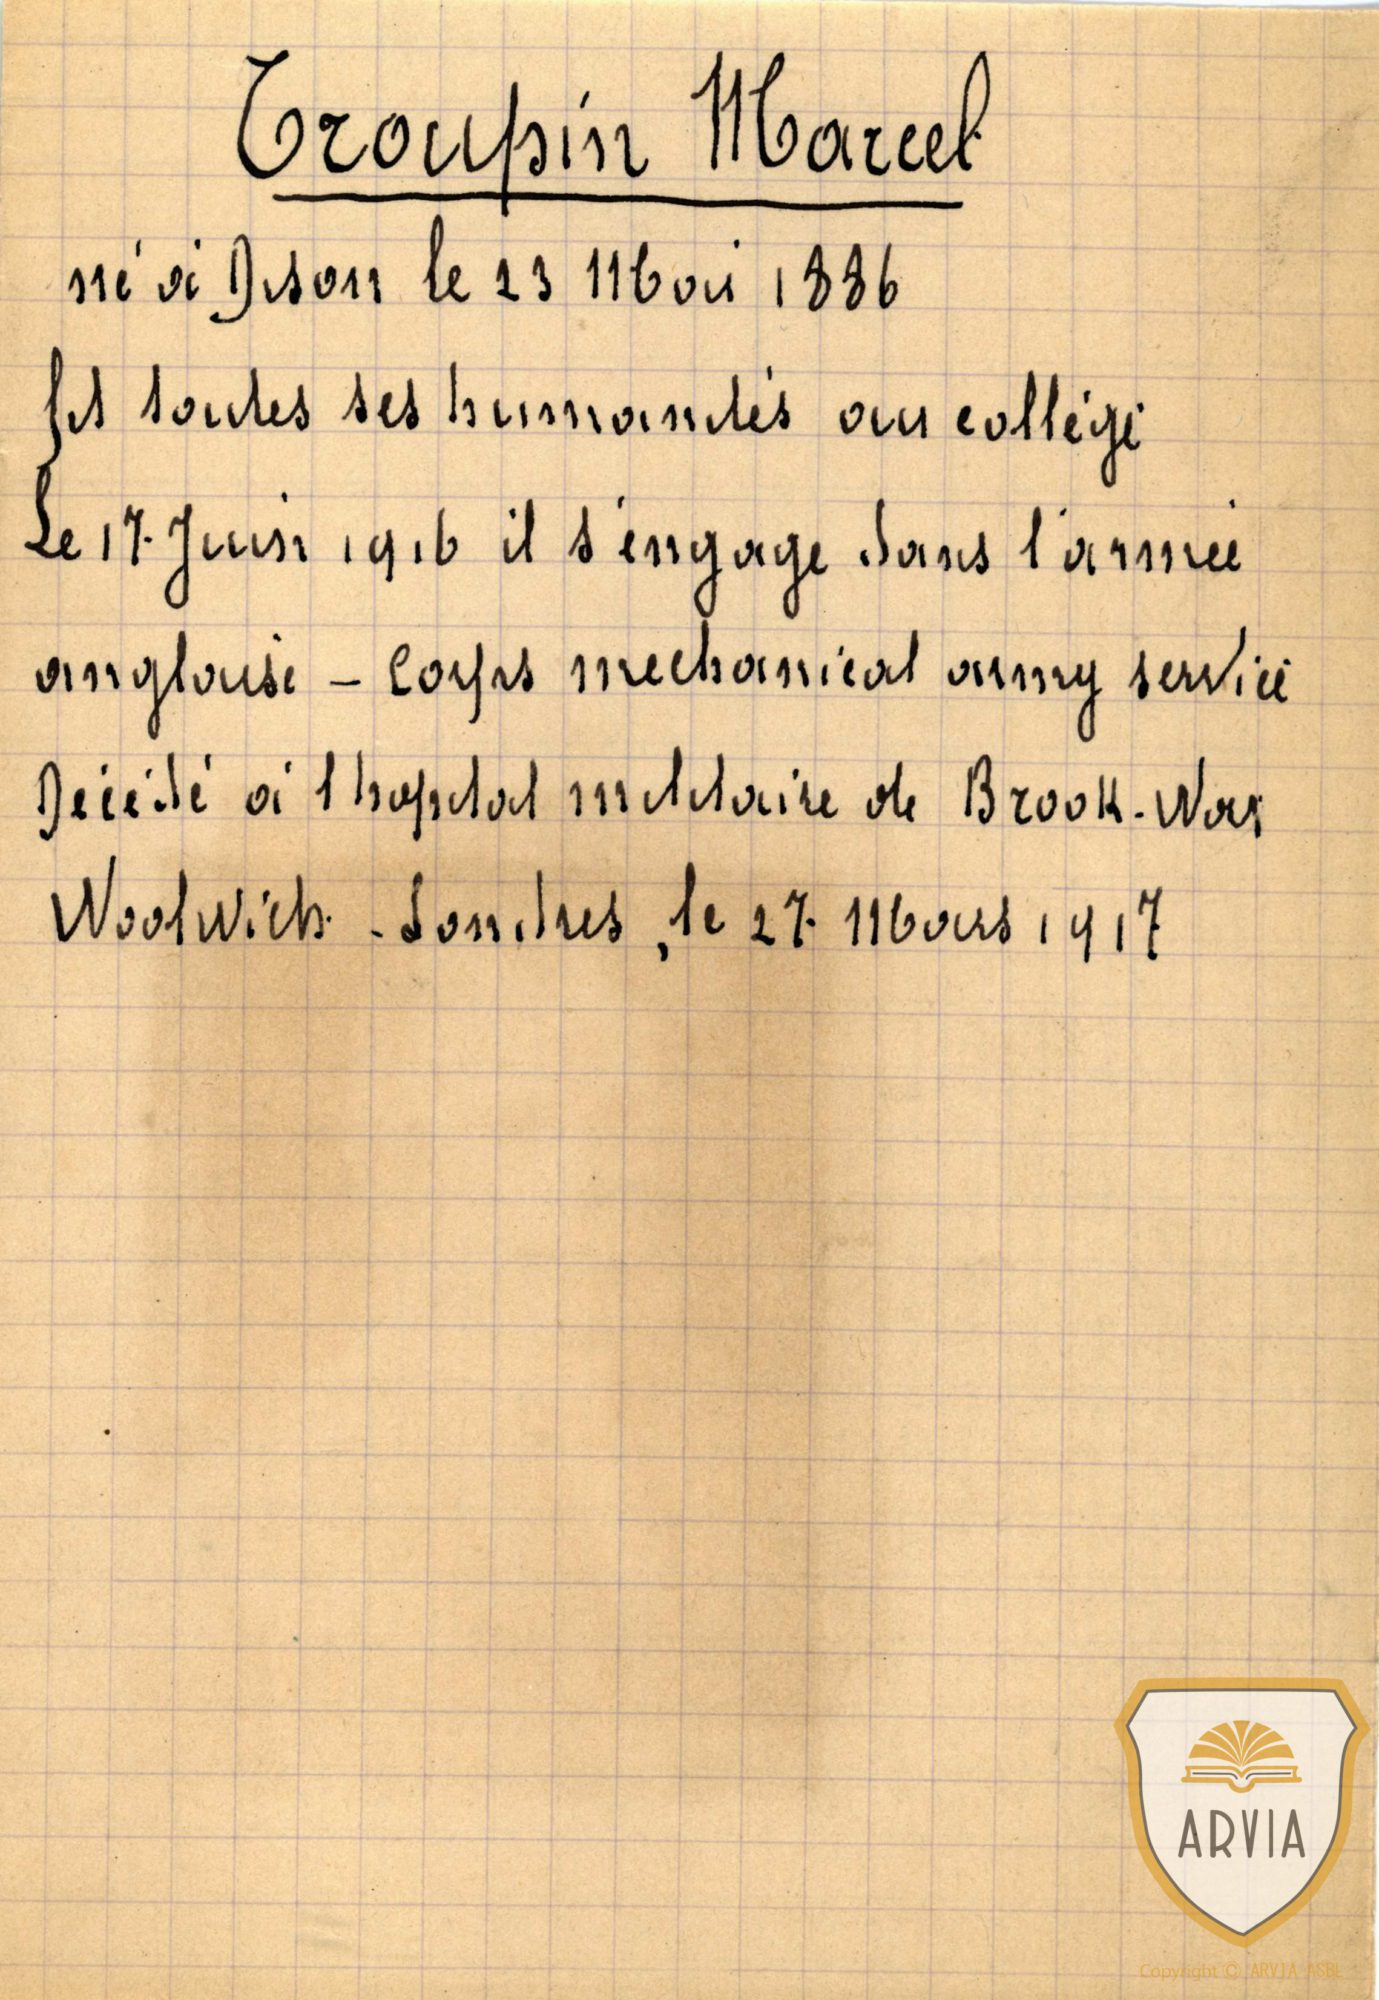 Troupin Marcel
né à Dison le 23 Mai 1886
fit toutes ses humanités au collège
Le 17 Juin 1916 il s'engage dans l'armée
anglaise - Corps mechanical army service
Décédé à l'hopital militaire de Brook-War
Woolwich - Londres, le 27 Mars 1917
ARVIA
Copyright © ARVIA ASBL